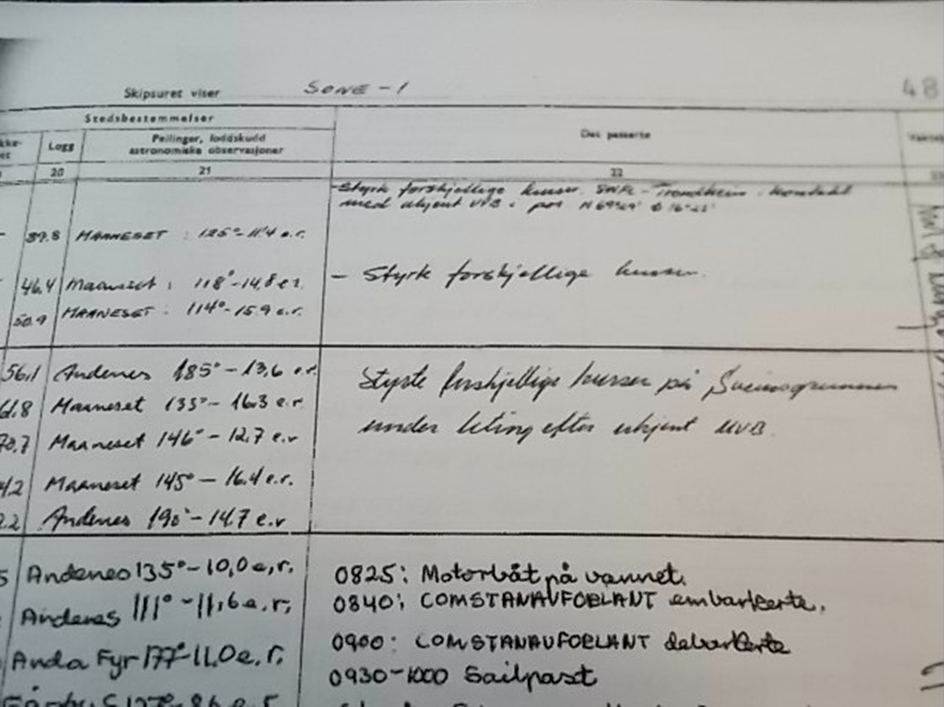 Skipsuret viser SONE - 1 48
Stedsbestemmelser
Logg
Peilinger, loddskudd
astronomiske observasjoner
Det passerte
20 21 22
-Styrk forskjellige kurser. - Trondheim. Kontakt
med ukjent UVB i pos N 69°
39.8 MAANESET : 125°-11.4 e.r.
46.4 Maaneset : 118°-14,8 e.r. - Styrk forskjellige kurser.
50.9 MAANESET : 114°-15.9 e.r.
56,1 Andenes 185°-13,6 e.r. Styrte forskjellige kurser på Sveinsgrunnen
61.8 Maaneset 135°- 16.3 e.r. under leting efter ukjent UVB.
70,7 Maaneset 146°- 12,7 e.r
4.2 Maaneset 145° - 16.4 e.r.
2.2 Andenes 190°-14.7 e.r
5 Andenes 135°-10,0 e,r. 0825: Motorbåt på vannet.
Andenes 111°-11,6 e.r. 0840: COMSTANAVFORLANT embarkerte.
Anda Fyr 177°-11.0 e.r. 0900: COMSTANAVFORLANT debarkerte
0930-1000 Sailpast